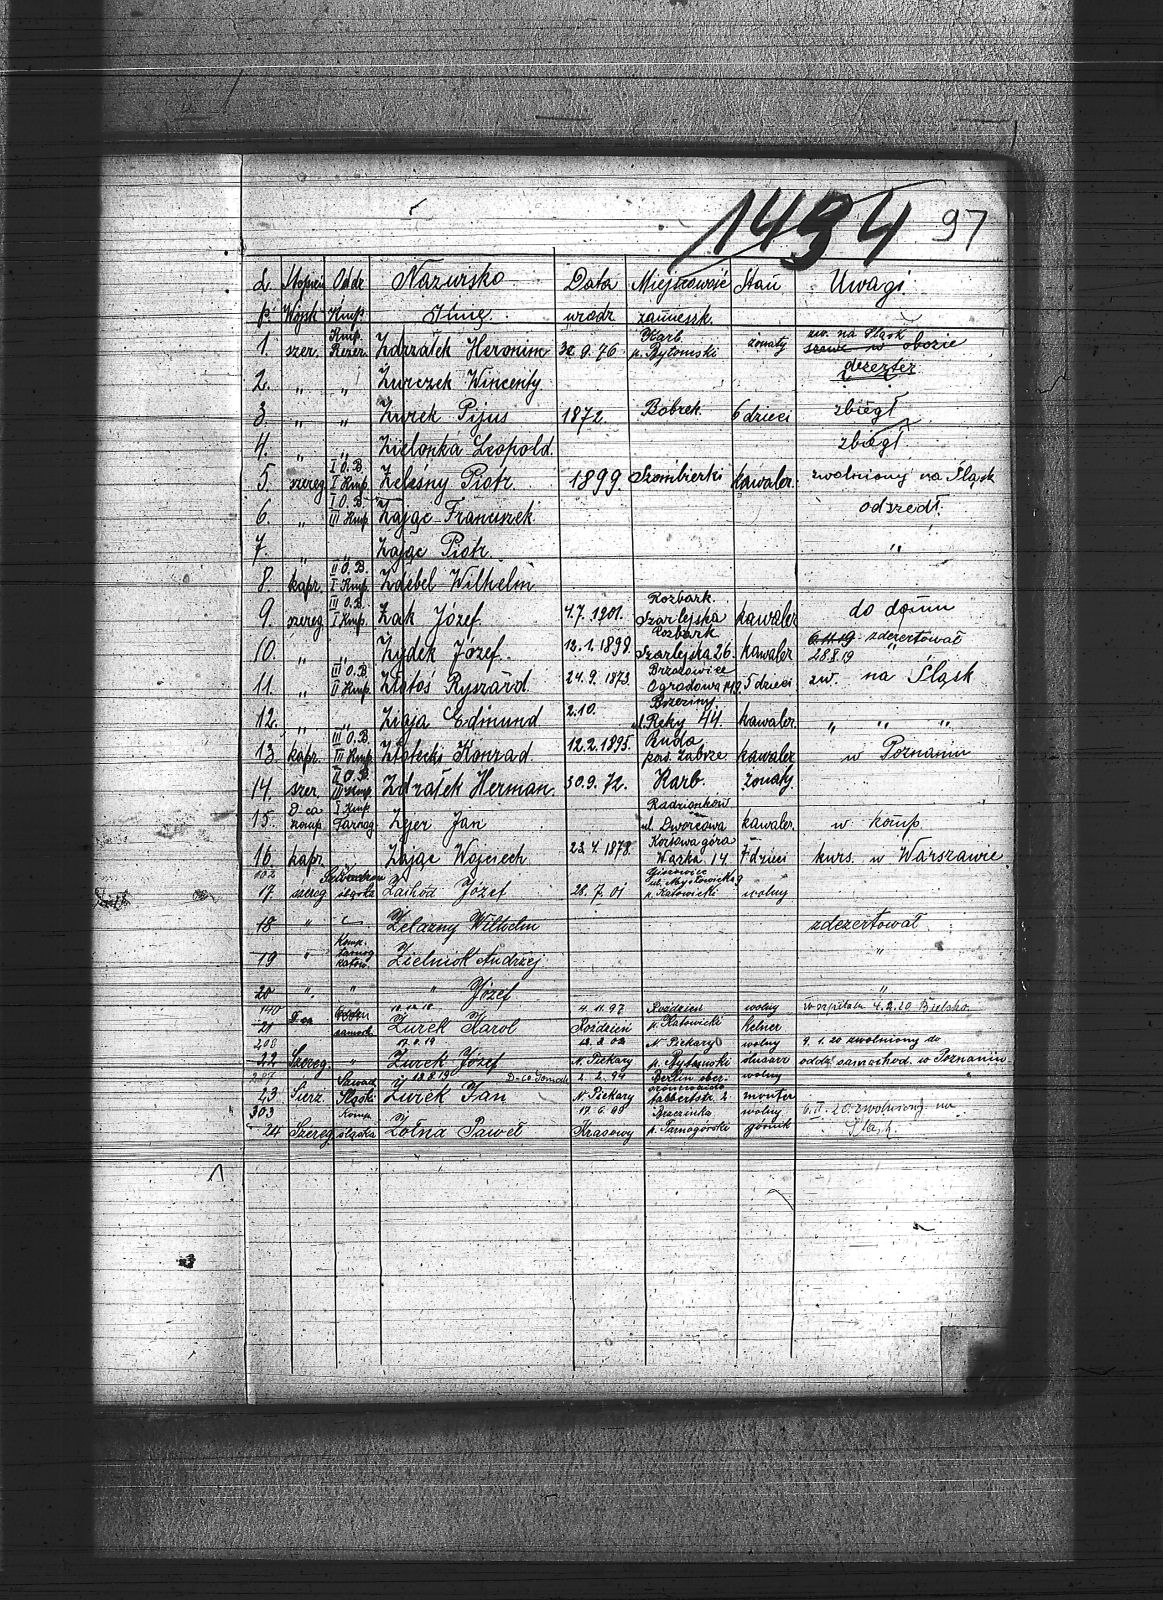 1434 97
L. Stopień Oddz Nazwisko Data Miejscowość Stan Uwagi
p. Wojsk Kmp. Imię. urodz zamieszk.
Kmp. Karb. zw. na Śląsk
1. szer. Rezer. Zdrzałek Heronim 30.9.76. p. Bytomski żonaty w obozie
dezerter
2. " " Żurczek Wincenty
3. " " Żurek Pijus 1872. Bobrek. 6 dzieci zbiegł
4. " " Zielonka Leopold. zbiegł
I O.B.
5. szereg I Kmp. Żeleśny Piotr. 1899. Szombierki kawaler. zwolniony na Śląsk
I O.B.
6. " III Kmp. Zając Franciszek. odszedł.
7. " " Zając Piotr. "
II O.B.
8. kapr. I Kmp. Zdebel Wilhelm
III O.B. Rozbark.
9. szereg I Kmp. Żak Józef. 4.7.1901. Szarlejska kawaler do domu
Rozbark 6.11.19. zdezertował
10. " " Żydek Józef. 12.1.1899. Szarlejska 26. kawaler 28.8.19 "
III O.B. Brzozowice
11. " II Kmp. Złotoś Ryszard. 24.9.1873. Ogrodowa 5 dzieci zw. na Śląsk
Brzeziny
12. " " Ziaja Edmund 2.10. ul. Reky 44. kawaler. " " "
III O.B. Ruda
13. kapr. III Kmp. Złotecki Konrad 12.2.1895. pow. Zabrze kawaler w Poznaniu
II O.B.
14. szer. Kmp. Zdrałek Herman. 30.9.72. Karb. żonaty.
D-ca I Kmp Radzionków
15. komp. Tarnog Zyer Jan ul. Dworcowa kawaler. w komp.
Kozłowagóra
16. kapr. Zając Wojciech 23.4.1878. Wąska 14. 7 dzieci kurs. w Warszawie
102 Giszowice
17. szereg śląska Zachod Józef 28.7.01 p. Katowicki wolny
ul. Mysłowicka 9
18 " Żelazny Wilhelm zdezertował
Komp.
tarnog
19 " Zielniok Andrzej "
20 " " " Józef "
140 4.11.97 Roździeń wolny w szpitalu 4.2.20 Bielsko.
21 Żurek Karol Roździeń p. Katowicki kelner
208 17.8.19 N. Piekary wolny 9.1.20 zwolniony do
22 Szereg. " Żurek Józef N. Piekary p. Bytomski ślusarz oddz. samochod. w Poznaniu
12.8.19 2.2.94 Berlin wolny "
23 Sierż. Śląski Żurek Jan N. Piekary monter
303 Komp. 17.6.90 Brzezinka wolny 6.II.20. zwolniony na
24 Szereg śląska Żołna Paweł Krasowy p. Tarnogórski górnik Śląsk.